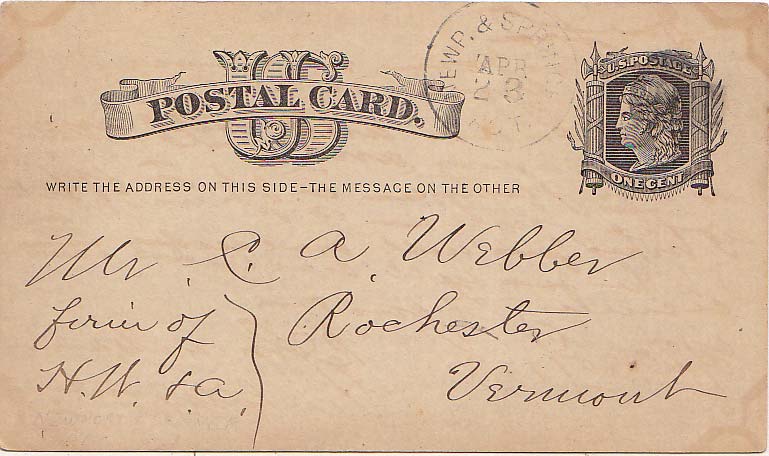 US
POSTAL CARD.
NEWP. & SPRING
APR
23
U.S. POSTAGE
ONE CENT
WRITE THE ADDRESS ON THIS SIDE—THE MESSAGE ON THE OTHER
Mr. C. A. Webber
firm of
Rochester
H. W. & a
Vermont